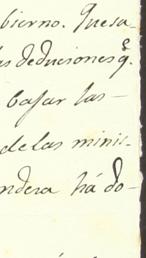 bierno. Quesa
as deduciones q.e
bajar las-
de las minis-
ndera há do-